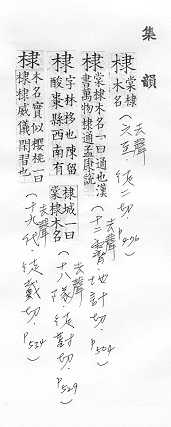 集韻
棣 棠棣木名(去聲 六至 徒二切 P476)
棣 棠棣木名一曰通也漢書萬物棣通孟康說(去聲 十二霽 大計切 P504)
棣 字林栘也陳留酸棗縣西南有棣城一曰棠棣木名(去聲 十八隊 徒對切 P529)
棣 木名實似櫻桃一曰棣棣威儀閑習也(去聲 十九代 徒戴切 P534)